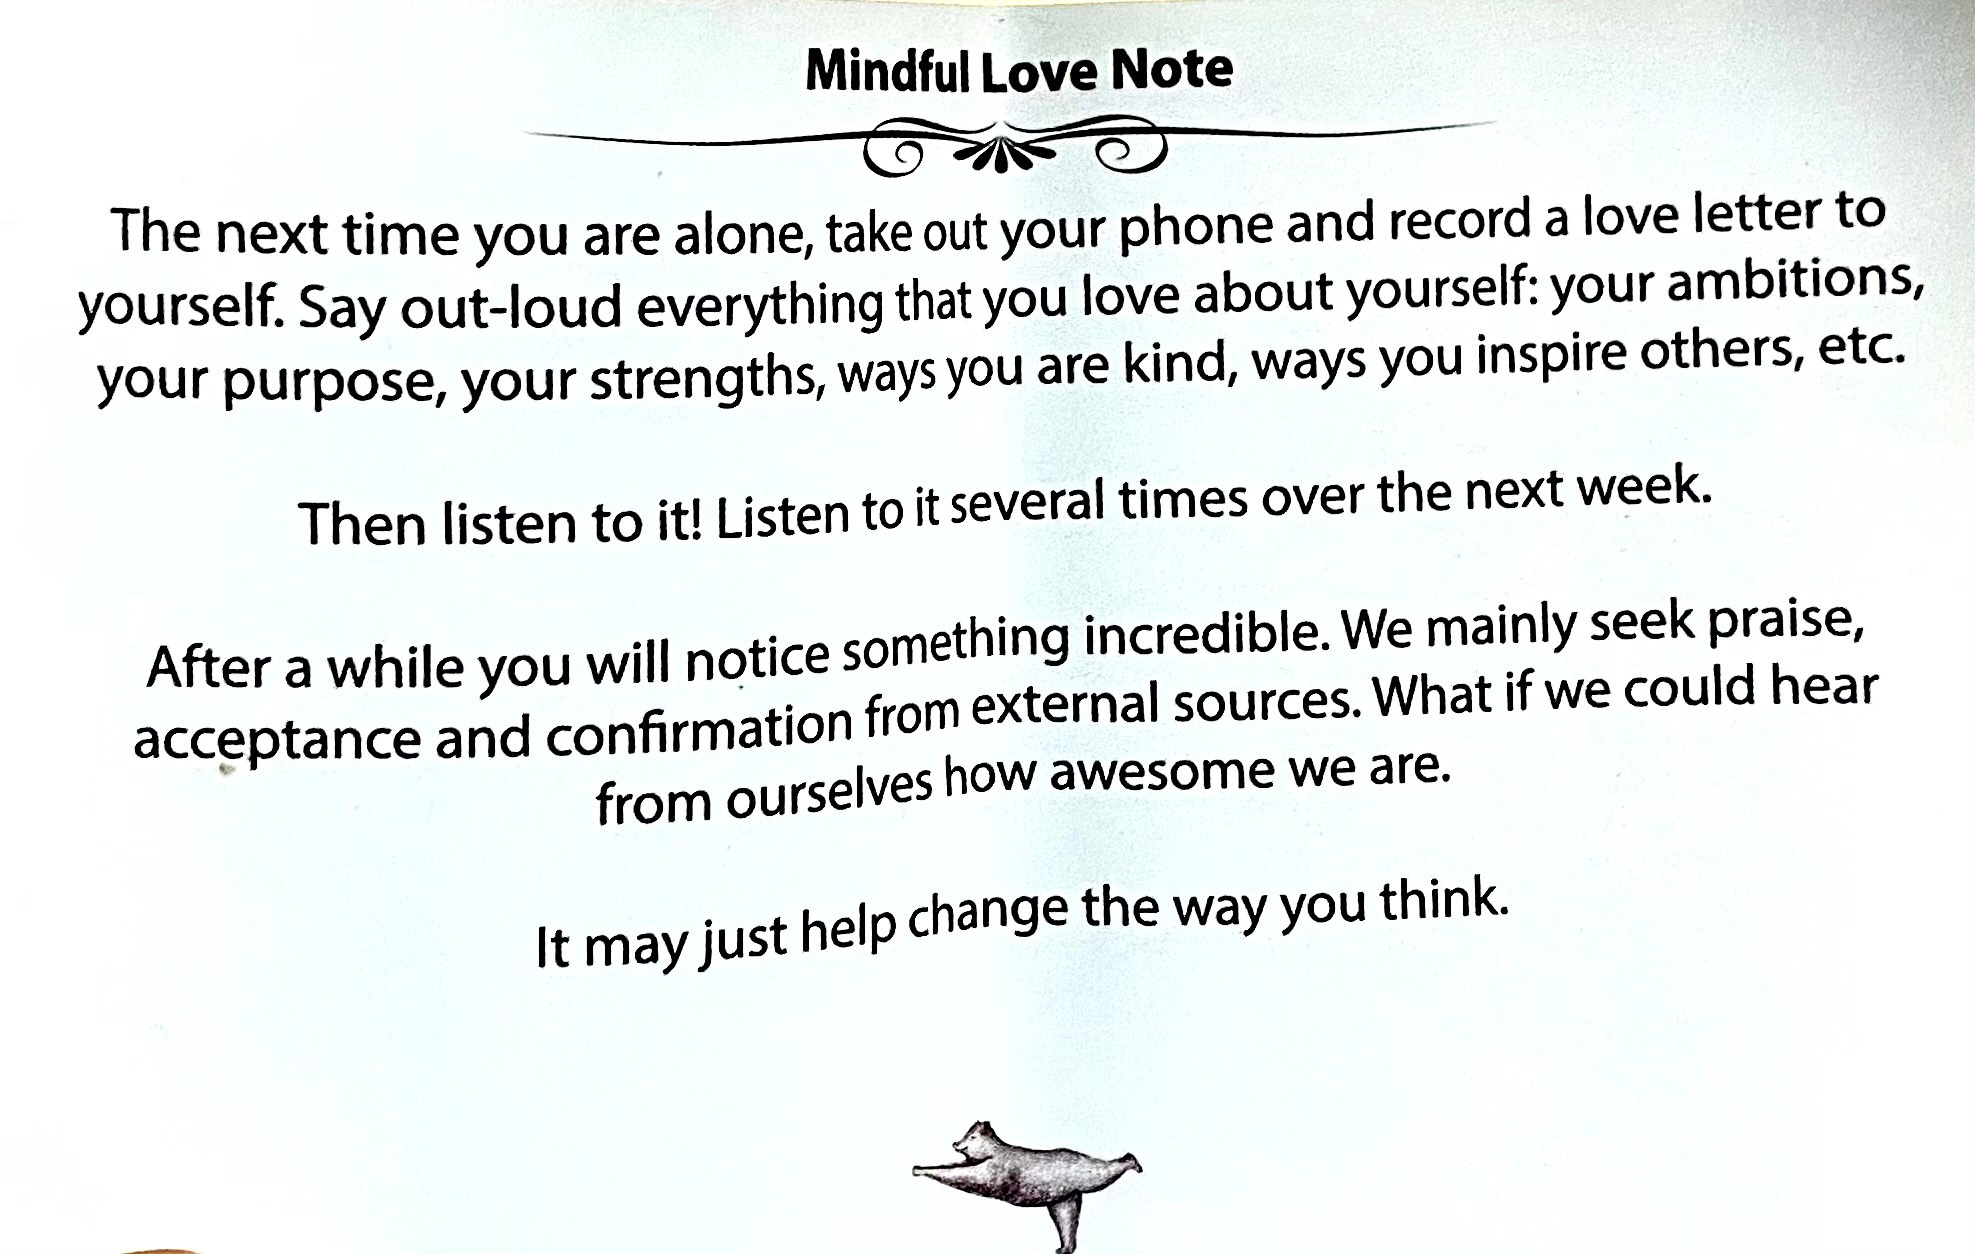 Mindful Love Note
The next time you are alone, take out your phone and record a love letter to
yourself. Say out-loud everything that you love about yourself: your ambitions,
your purpose, your strengths, ways you are kind, ways you inspire others, etc.
Then listen to it! Listen to it several times over the next week.
After a while you will notice something incredible. We mainly seek praise,
acceptance and confirmation from external sources. What if we could hear
from ourselves how awesome we are.
It may just help change the way you think.